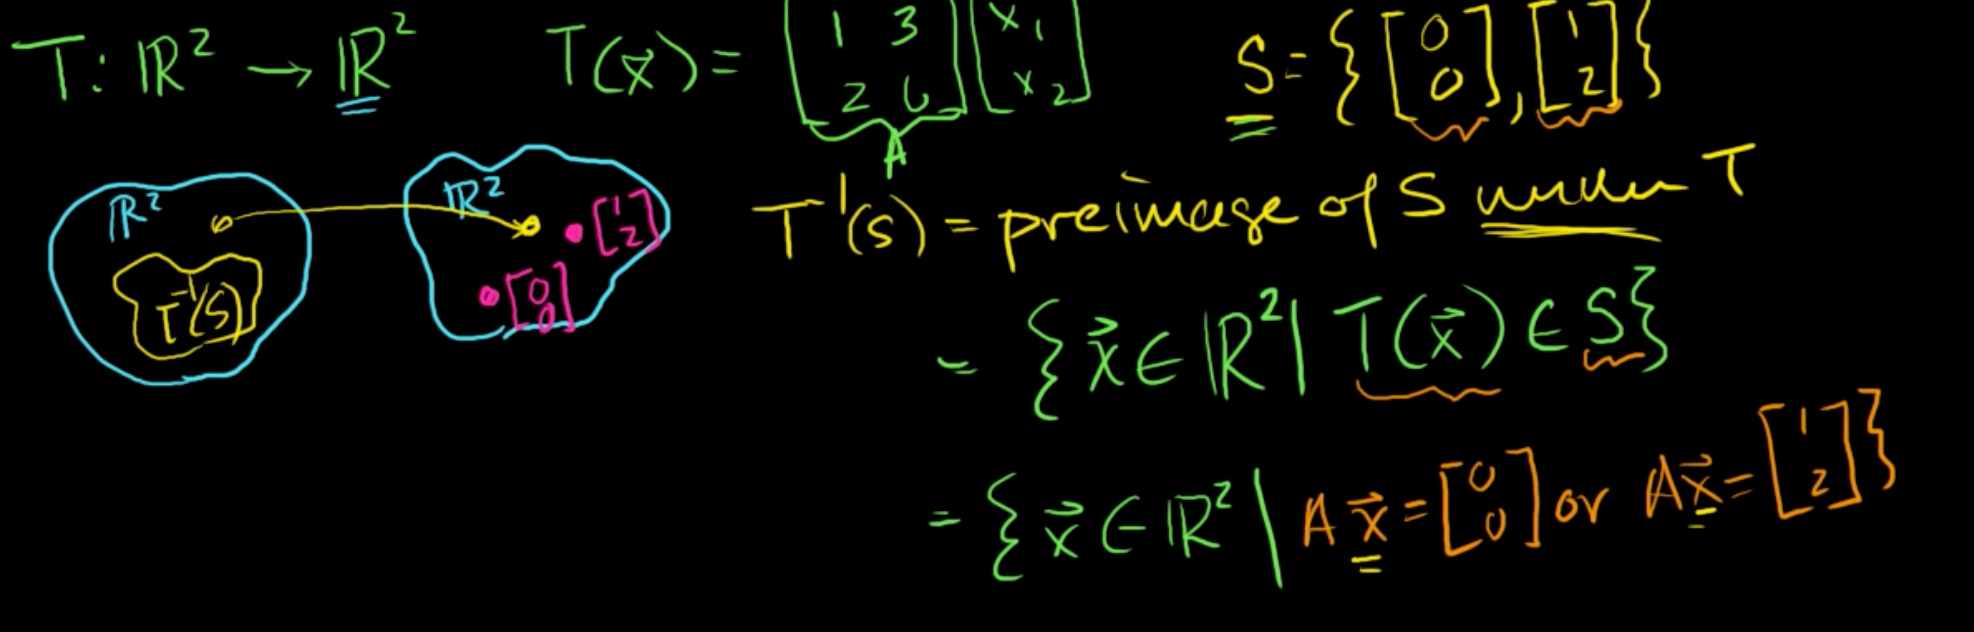 T: ℝ² → ℝ² T(x⃗) = [1 3; 2 6] [x₁; x₂] S = {[0; 0], [1; 2]}
A
ℝ² ℝ² [1; 2] T⁻¹(S) = preimage of S under T
T⁻¹(S) [0; 0]
= {x⃗ ∈ ℝ² | T(x⃗) ∈ S}
= {x⃗ ∈ ℝ² | A x⃗ = [0; 0] or A x⃗ = [1; 2]}